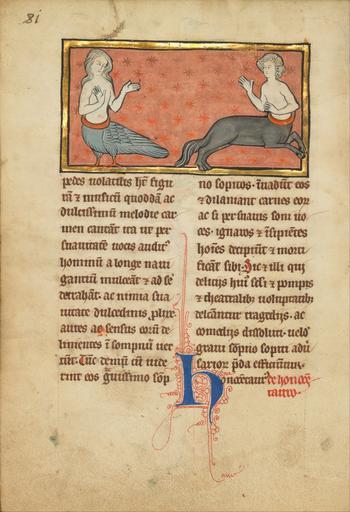 81
pedes uolatilis hn̄t figu
rā ⁊ musicū quoddā ac
dulcissimū melodie car
men canūt ita ut per
suauitatē uocis auditꝰ
hominū a longe naui
gantiū mulceāt ⁊ ad se
detrahāt. ac nimia sua
uitate dulcedinis plur
aures ac sensus eorū de
linientes ī sompnū uer
tūt. Tūc demū cū uide
rint eos g̃uissimo sōp
no sopitos. īuadūt eos
⁊ dilaniant carnes eorꝝ
ac si persuasis soni uo
ces. ignaros ⁊ īsipiētes
hoīes decipiūt ⁊ morti
ficāt sibi. Sic ⁊ illi qui
deliciis huiꝰ secl̄i ⁊ pompis
⁊ theatralibꝫ uoluptatibꝫ
delectātur tragediis. ac
comediis dissoluti. uelud
graui sōpno sopiti adū
sariorꝝ p̄da efficiuntur.
honocētaurꝰ de honocē
tauro.